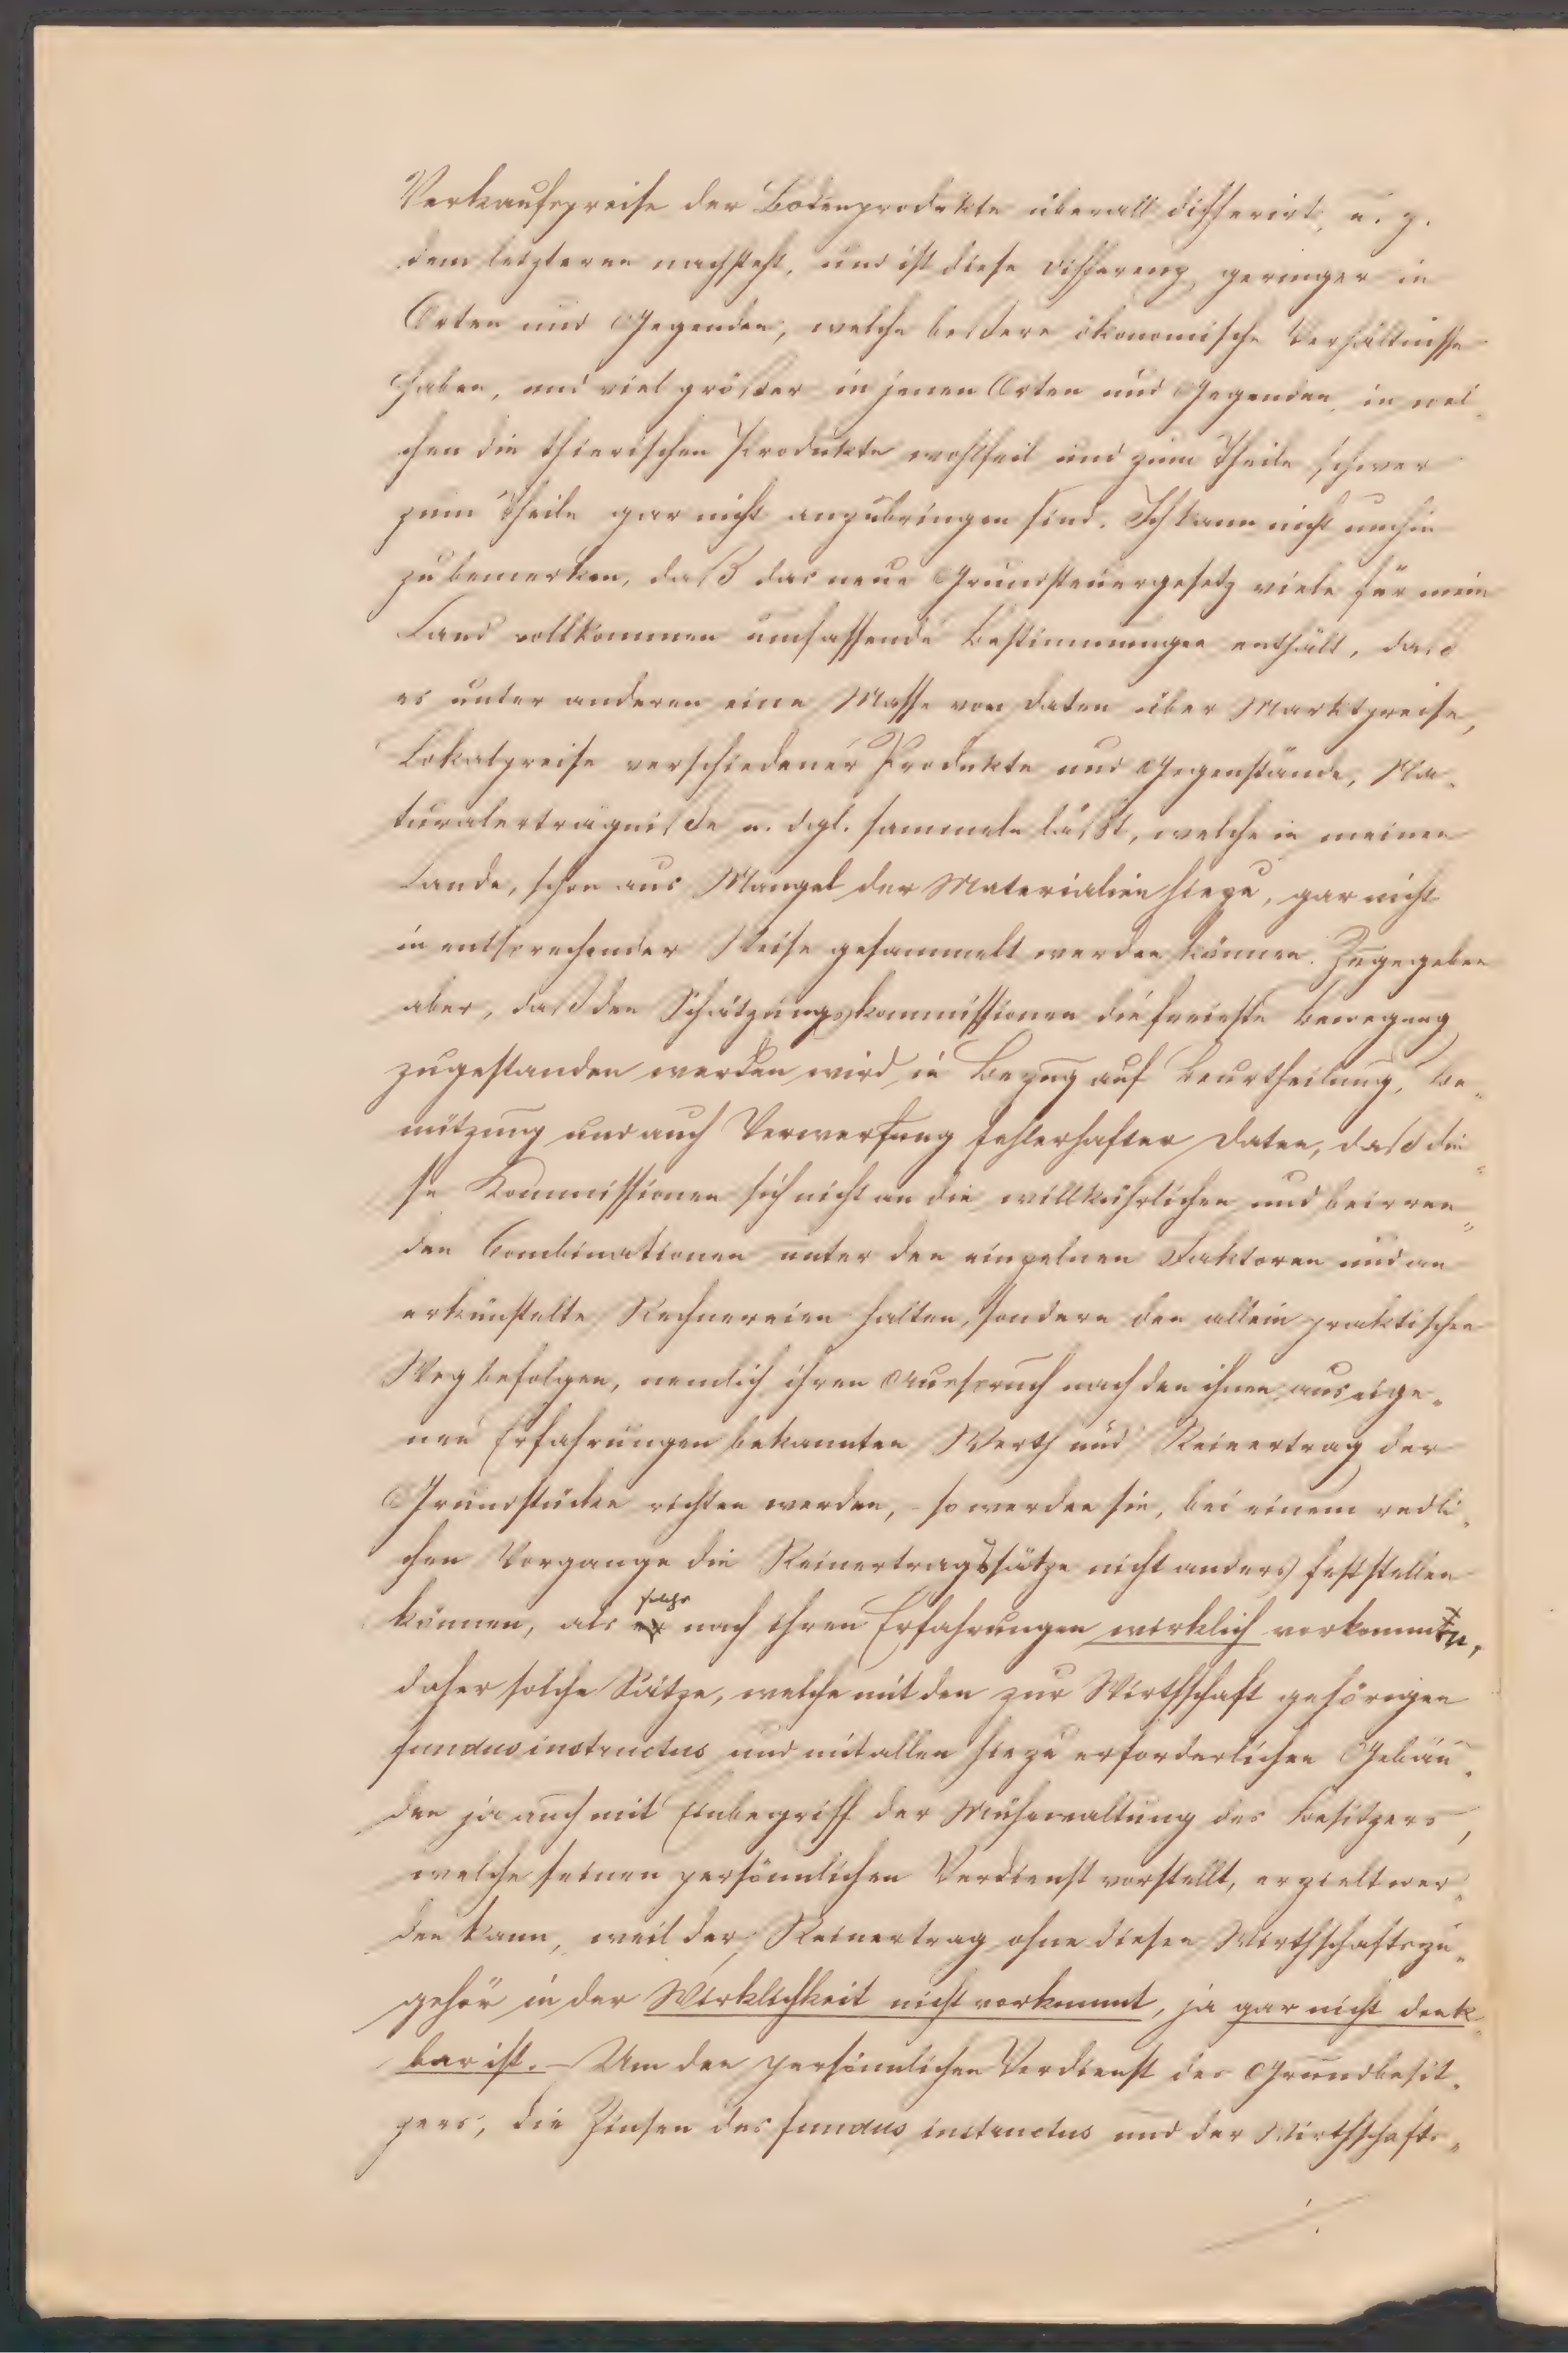 Verkaufspreise der Bodenprodukte überall differirt, u. z.
dem letzteren nachsteht, und ist diese Differenz geringer in
Orten und Gegenden, welche bessere ökonomische Verhältnisse
haben, und viel größer in jenen Orten und Gegenden, in wel-
chen die thierischen Produkte wohlfeil und zum Theile schwer
zum Theile gar nicht anzubringen sind. Ich kann nicht umhin
zu bemerken, daß das neue Grundsteuergesetz viele für mein
Land vollkommen umfassende Bestimmungen enthält, daß
es unter anderen eine Masse von Daten über Marktpreise,
Lokalpreise verschiedener Produkte und Gegenstände, Na-
turalerträgniße u. dgl. sammeln läßt, welche in meinen
Lande, schon aus Mangel der Materialien hiezu, gar nicht
in entsprechender Weise gesammelt werden können. Zugegeben
aber, daß den Schätzungskommissionen die freieste Bewegung
zugestanden werden wird in Bezug auf Beurtheilung, Be-
nützung und auch Verwerfung fehlerhafter Daten, daß die-
se Kommissionen sich nicht an die willkührlichen und beirren-
den Combinationen unter den einzelnen Faktoren und an
erkünstelte Rechnereien halten, sondern den allein praktischen
Weg befolgen, nemlich ihren Ausspruch nach den ihnen aus eige-
nen Erfahrungen bekannten Werth und Reinertrag der
Grundstücke richten werden, – so werden sie, bei einem redli-
chen Vorgange die Reinertragssätze nicht anders feststellen
können, als solche nach ihren Erfahrungen wirklich vorkommen,
daher solche Sätze, welche mit den zur Wirthschaft gehörigen
fundus instructus und mit allen hiezu erforderlichen Gebäu-
den ja auch mit Einbegriff der Mühewaltung des Besitzers,
welche seinen persönnlichen Verdienst vorstellt, erzielt wer-
den kann, weil der Reinertrag ohne diesen Wirthschaftszu-
gehör in der Wirklichkeit nicht vorkommt, ja gar nicht denk-
bar ist. – Um den persönnlichen Verdienst des Grundbesit-
zers, die Zinsen des fundus instructus und der Wirthschafts-